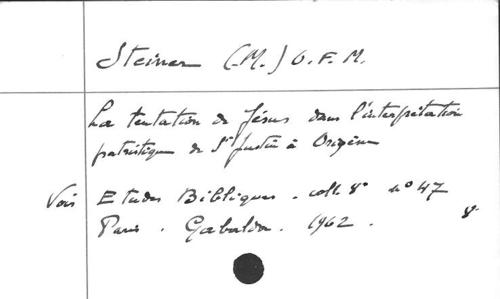 Steiner (M.) O.F.M.
La tentation de Jésus dans l'interprétation
patristique de St Justin à Origène
Voir Etudes Bibliques. coll. 8° n° 47
Paris. Gabalda. 1962.
8°